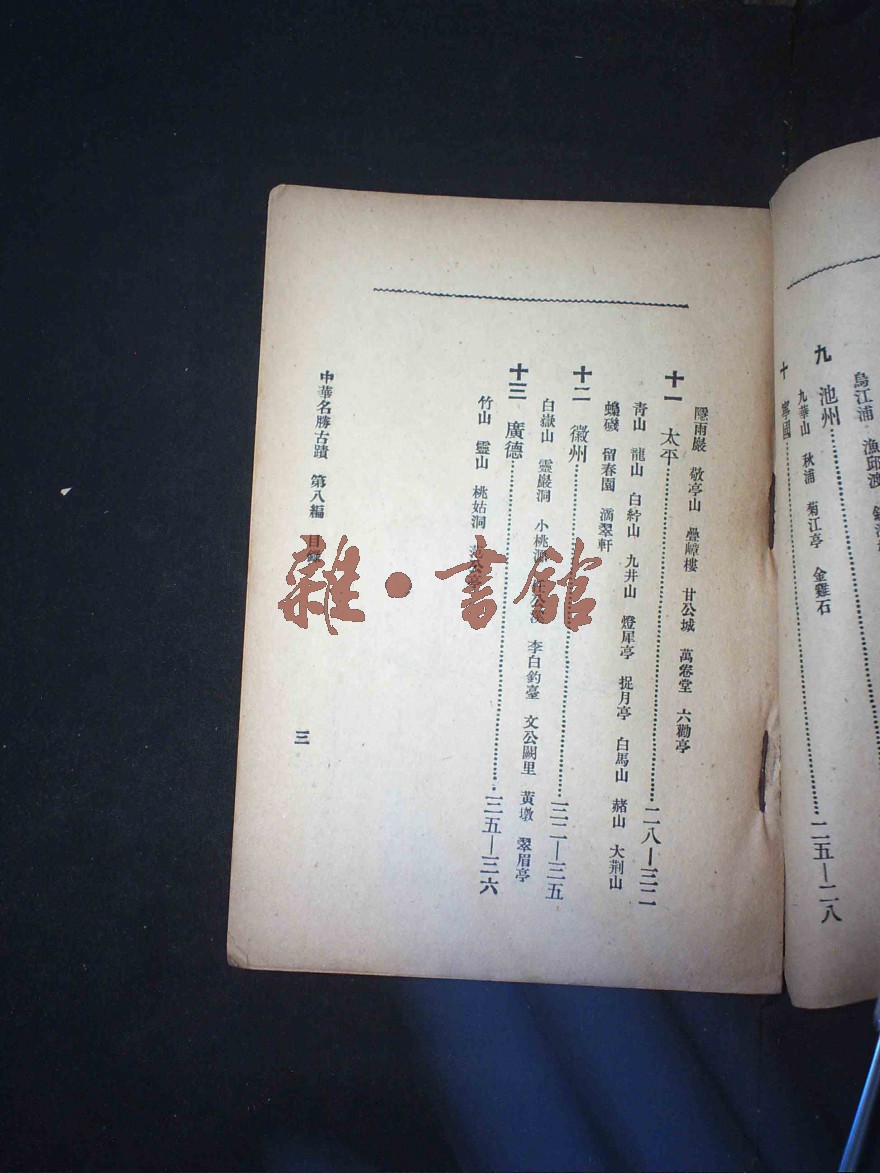 烏江浦　漁邱渡
九　池州
九華山　秋浦　菊江亭　金雞石
十　寧國……二五—二八
隱雨巖　敬亭山　疊嶂樓　甘公城　萬卷堂　六勸亭
十一　太平……二八—三二
青山　龍山　白紵山　九井山　燈犀亭　捉月亭　白馬山　赭山　大荆山
蟂磯　留春園　滴翠軒
十二　徽州……三二—三五
白嶽山　靈巖洞　小桃源　任公　李白釣臺　文公闕里　黃墩　翠眉亭
十三　廣德……三五—三六
竹山　靈山　桃姑洞　范公亭
中華名勝古蹟　第八編　目錄
三
雜·書館